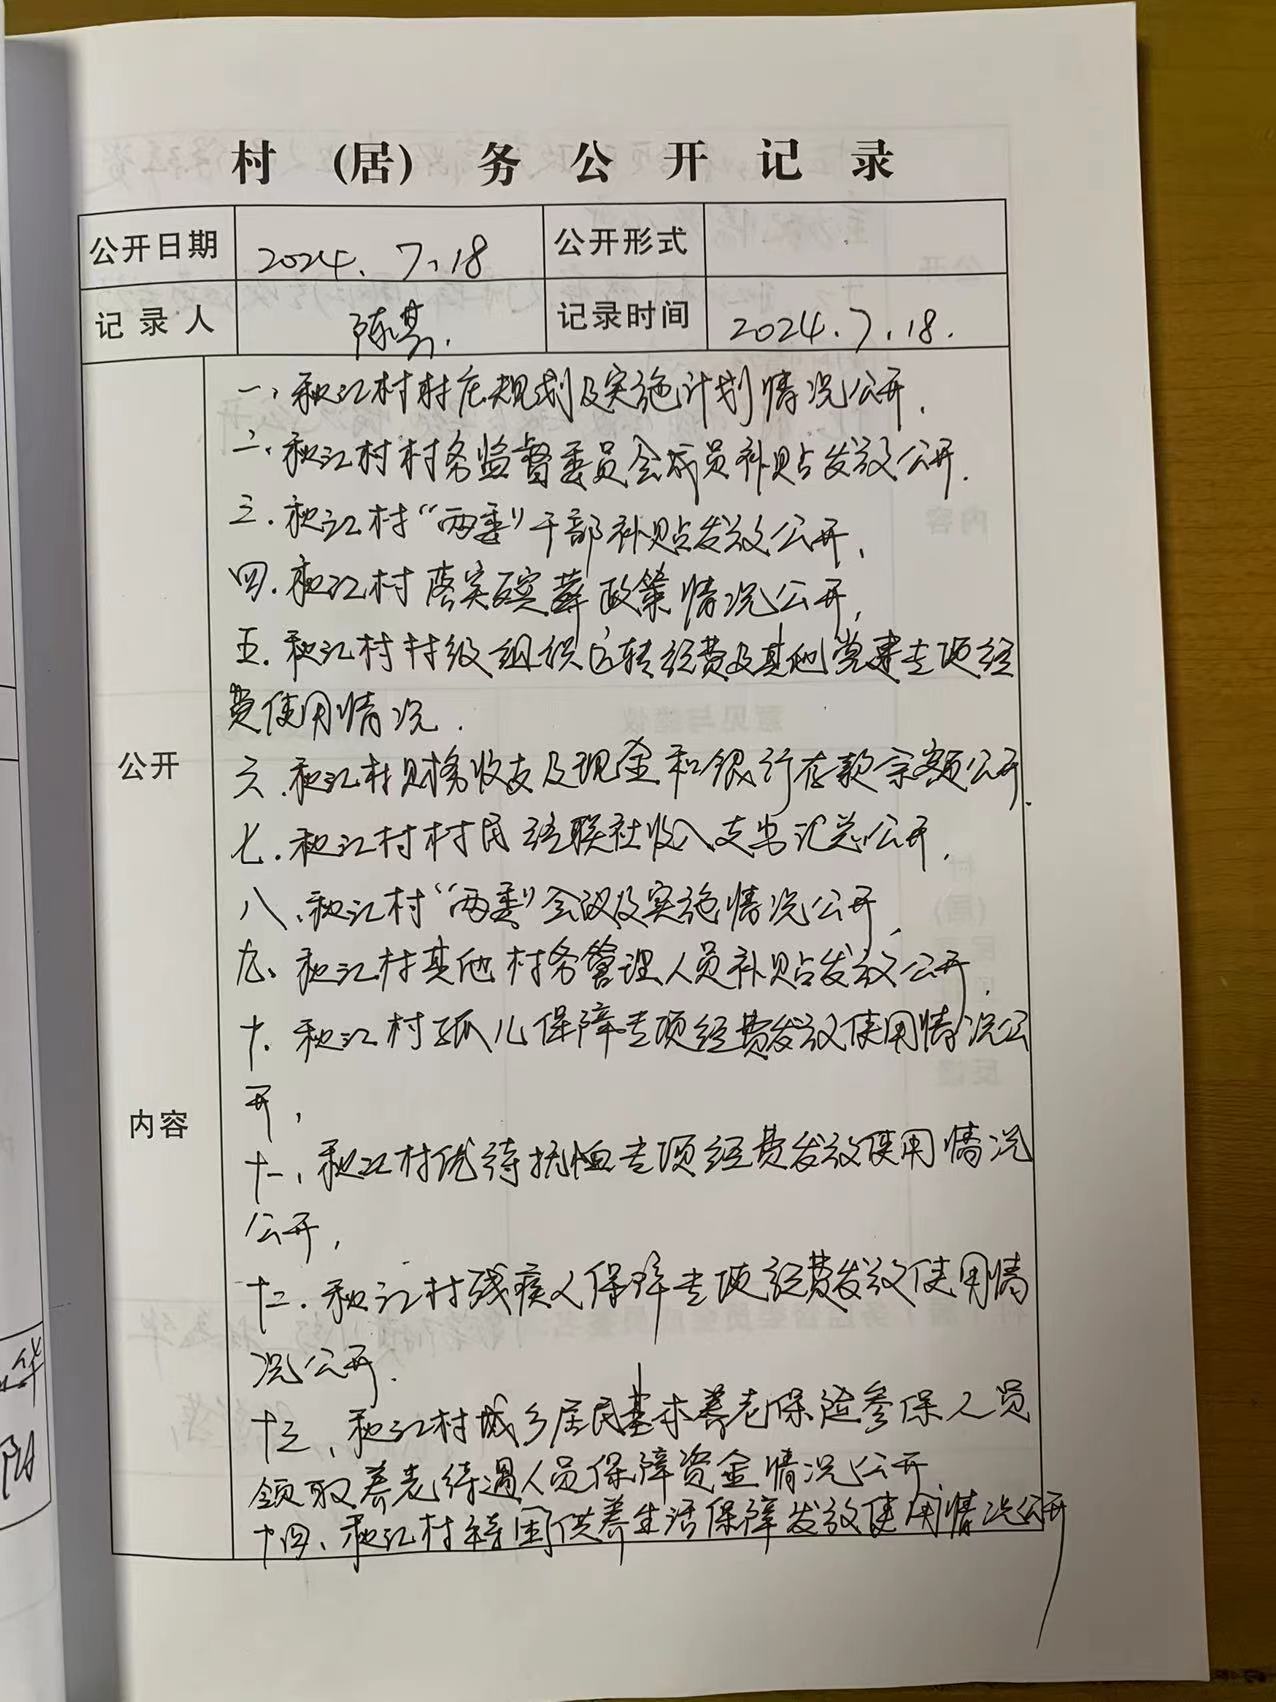 村（居）务公开记录
公开日期 2024.7.18 公开形式
记录人 陈 记录时间 2024.7.18.
一、秋江村村庄规划及实施计划情况公开.
二、秋江村村务监督委员会成员补贴发放公开.
三.秋江村“两委”干部补贴发放公开.
四.秋江村落实殡葬政策情况公开,
五.秋江村村级组织运转经费及其他党建专项经
费使用情况.
公开
六.秋江村财务收支及现金和银行存款余额公开.
七.秋江村村民经联社收入支出汇总公开.
八、秋江村“两委”会议及实施情况公开.
九、秋江村其他村务管理人员补贴发放公开.
十.秋江村孤儿保障专项经费发放使用情况公
开,
内容
十一、秋江村优待抚恤专项经费发放使用情况
公开,
十二.秋江村残疾人保障专项经费发放使用情
况公开.
十三、秋江村城乡居民基本养老保险参保人员
领取养老待遇人员保障资金情况公开.
十四、秋江村特困供养生活保障发放使用情况公开